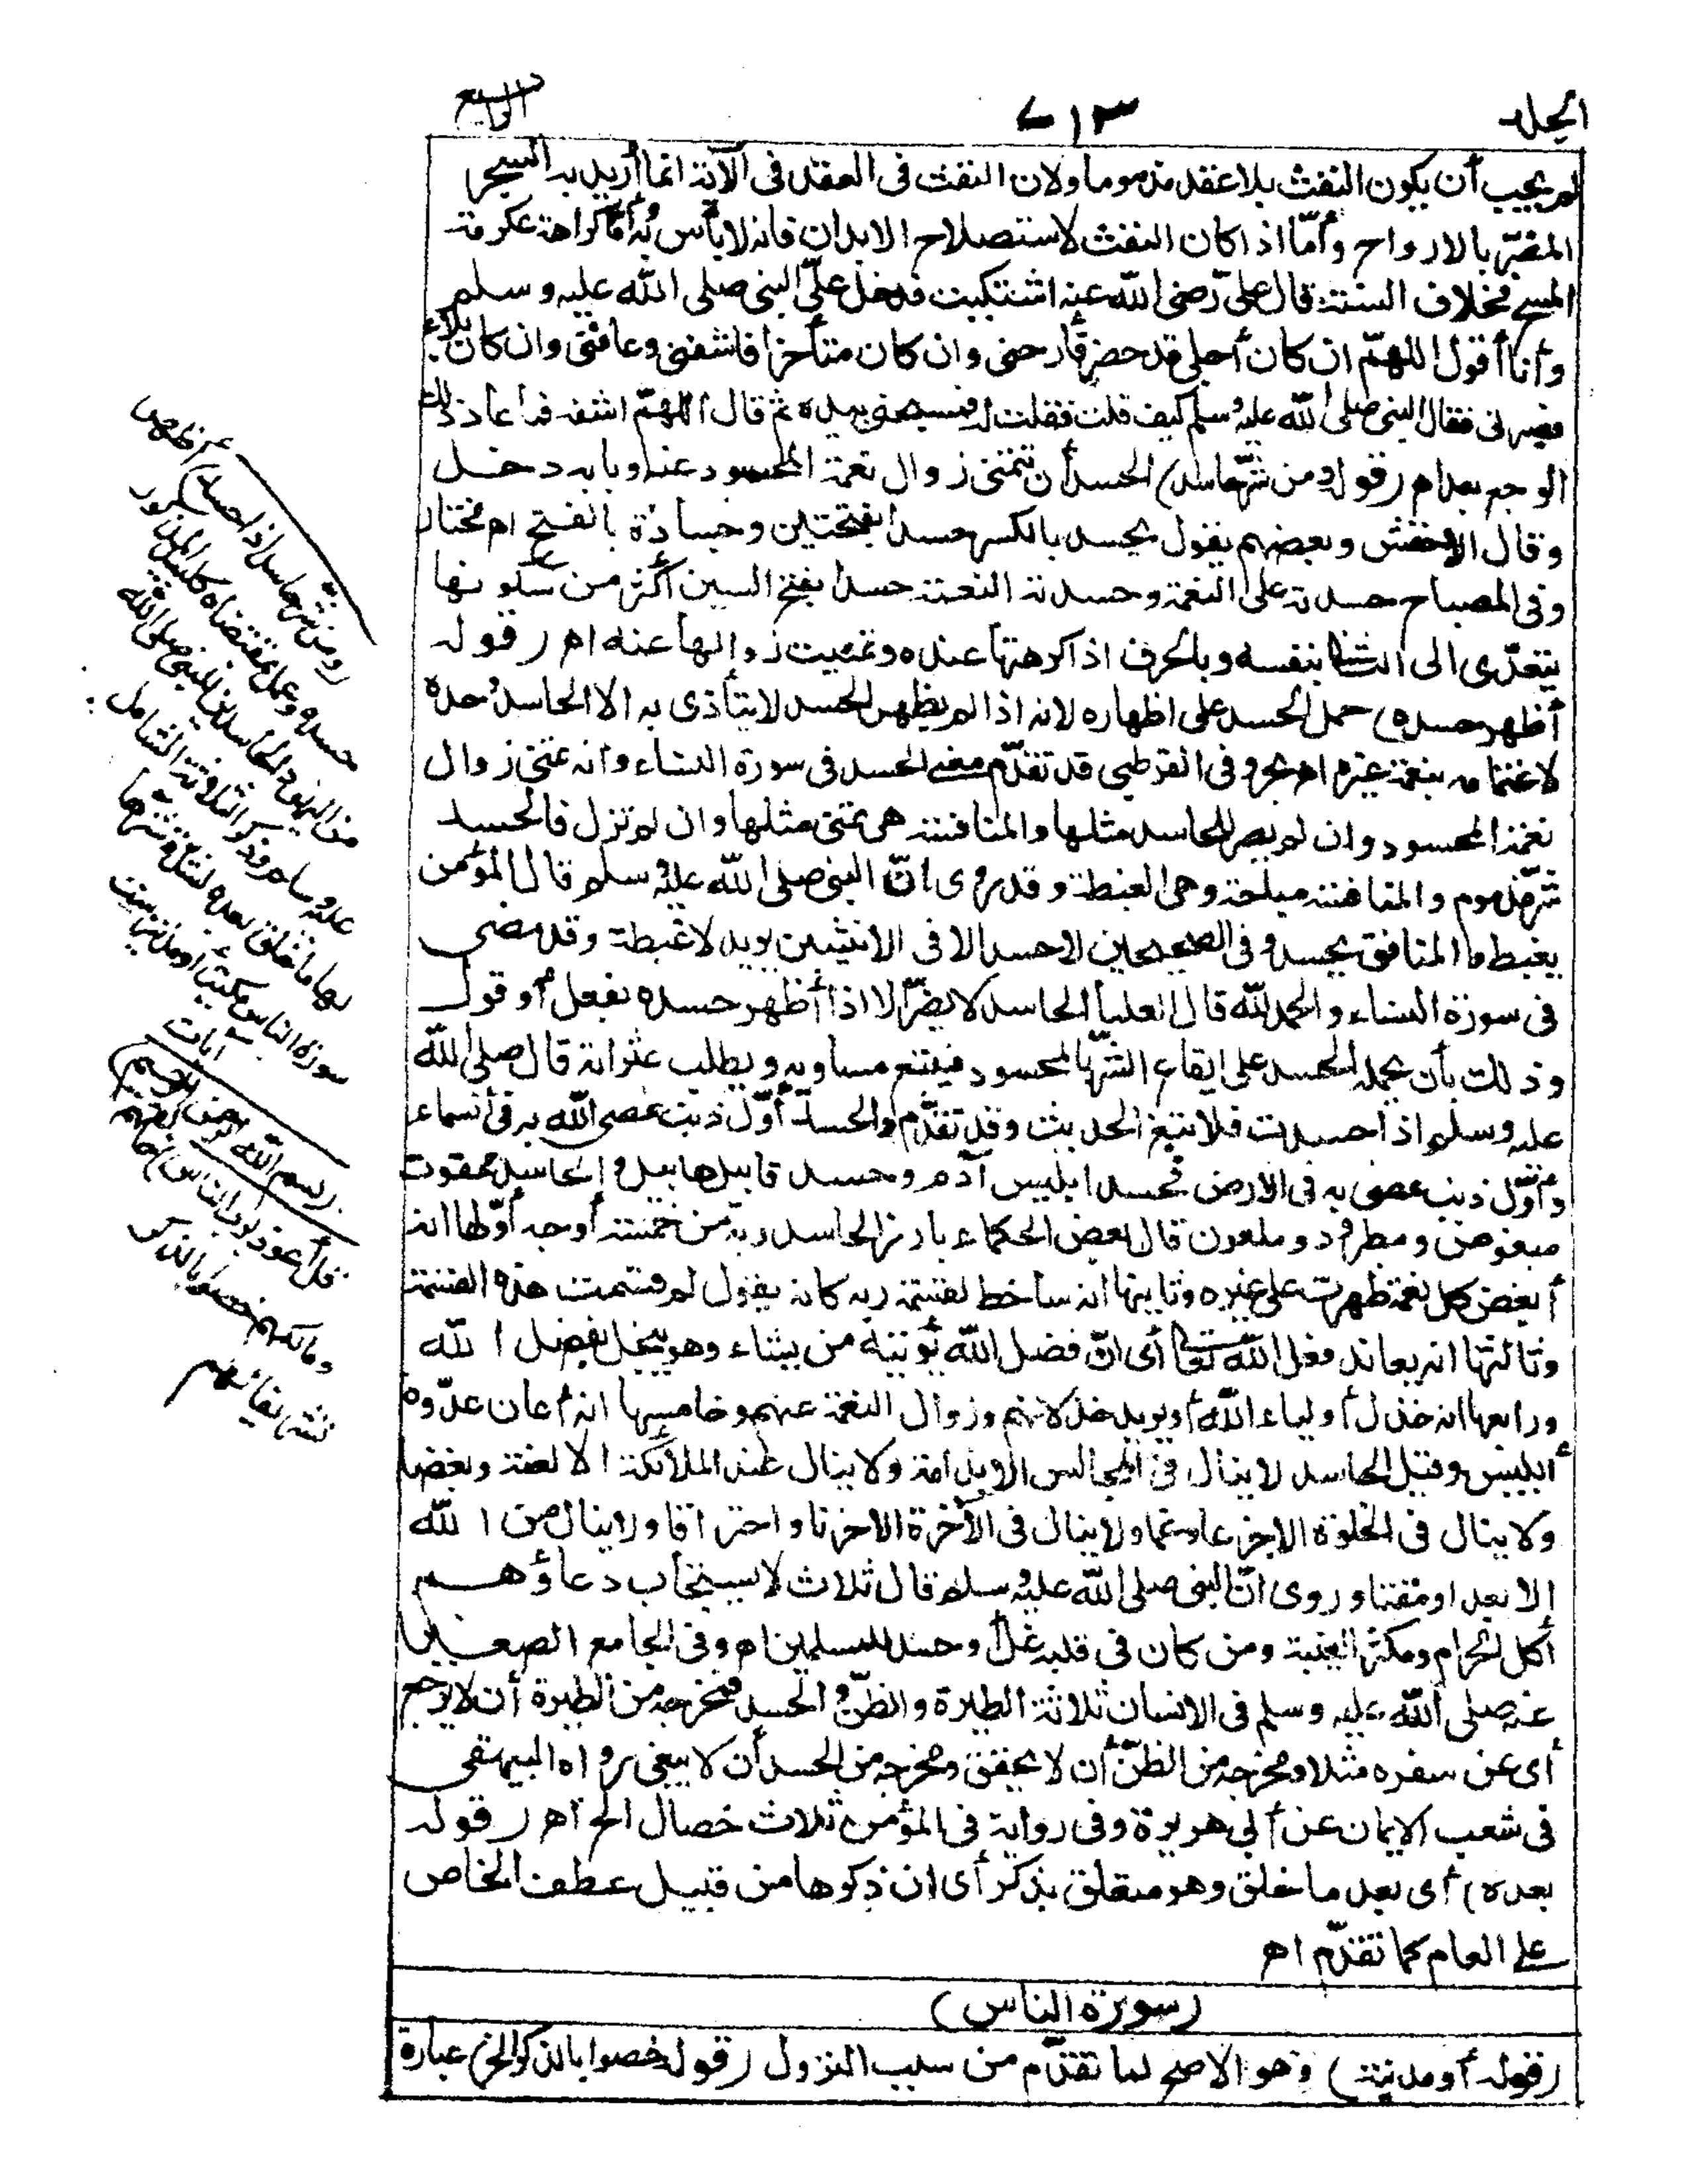 الجلد ٦١٣ الرابع
لم يجب أن يكون النفث بلا عقد مذموما ولان النفث فى العقد فى الآية انما أريد به السحر
المضر بالارواح وأمّا اذا كان النفث لاستصلاح الابدان فانه لا بأس به وأما كراهة عكرمة
المسح فخلاف السنة قال علىّ رضى الله عنه اشتكيت فدخل علىّ النبى صلى الله عليه وسلم
وأنا أقول اللهمّ ان كان أجلى قد حضر فأرحنى وان كان متأخرا فاشفنى وعافنى وان كان بلاء
فصبرنى فقال النبى صلى الله عليه وسلم كيف قلت فقلت له فمسحنى بيده ثم قال اللهمّ اشفه فما عاد ذلك
الوجع بعد اه (قوله ومن شرّ حاسد) الحسد أن تتمنى زوال نعمة المحسود عنه وبابه دخل
وقال الاخفش وبعضهم يقول يحسد بالكسر حسدا بفتحتين وحسادة بالفتح اه مختار
وفى المصباح حسدته على النعمة وحسدته النعمة حسدا بفتح السين أكثر من سكونها
يتعدّى الى الثانى بنفسه وبالحرف اذا كرهتها عنده وتمنيت زوالها عنه اه (قوله
أظهر حسده) حمل الحسد على اظهاره لانه اذا لم يظهر الحسد لا يتأذى به الا الحاسد وحده
لاغتمامه بنعمة غيره اه بحر وفى القرطبى قد تقدّم معنى الحسد فى سورة النساء وانه تمنى زوال
نعمة المحسود وان لم يصر للحاسد مثلها والمنافسة هى تمنى مثلها وان لم تزل فالحسد
شرّ مذموم والمنافسة مباحة وهى الغبطة وقد روى انّ النبى صلى الله عليه وسلم قال المؤمن
يغبط والمنافق يحسد وفى الصحيحين لا حسد الا فى اثنتين يريد لا غبطة وقد مضى
فى سورة النساء والحمد لله قال العلماء الحاسد لا يضرّ الا اذا أظهر حسده بفعل أو قول
وذلك بأن يحمله الحسد على ايقاع الشرّ بالمحسود فيتبع مساويه ويطلب عثراته قال صلى الله
عليه وسلم اذا حسدت فلا تبغ الحديث وقد تقدّم والحسد أوّل ذنب عصى الله به فى السماء
وأوّل ذنب عصى به فى الارض فحسد ابليس آدم وحسد قابيل هابيل والحاسد ممقوت
مبغوض ومطرود وملعون قال بعض الحكماء بارز الحاسد ربه من خمسة أوجه أوّلها انه
أبغض كل نعمة ظهرت على غيره وثانيها انه ساخط لقسمة ربه كانه يقول لم قسمت هذه القسمة
وثالثها انه يعاند فعل الله تعالى أى انّ فضل الله يؤتيه من يشاء وهو يبخل بفضل الله
ورابعها انه خذل أولياء الله أو يريد خذلانهم وزوال النعمة عنهم وخامسها انه أعان عدّوه
أبليس وقيل الحاسد لا ينال فى المجالس الا ندامة ولا ينال عند الملائكة الا لعنة وبغضا
ولا ينال فى الخلوة الا جزعا وغما ولا ينال فى الآخرة الا حزنا واحتراقا ولا ينال من الله
إلا بعدا ومقتا وروى انّ النبى صلى الله عليه وسلم قال ثلاث لا يستجاب دعاؤهم
أكل الحرام ومكثر الغيبة ومن كان فى قلبه غل أو حسد للمسلمين اه وفى الجامع الصغير
عنه صلى الله عليه وسلم فى الانسان ثلاثة الطيرة والظنّ والحسد فمخرجه من الطيرة أن لا يرجع
أى عن سفره مثلا ومخرجه من الظنّ أن لا يحقق ومخرجه من الحسد أن لا يبغى رواه البيهقى
فى شعب الايمان عن أبى هريرة وفى رواية فى المؤمن ثلاث خصال الخ اه (قوله
بعده) أى بعد ما خلق وهو متعلق بذكر أى ان ذكرها من قبيل عطف الخاص
على العام كما تقدّم اه
(سورة الناس)
(قوله أو مدنية) وهو الاصح لما تقدّم من سبب النزول (قوله خصوا بالذكر الخ) عبارة
(ومن شر حاسد اذا حسد) أظهر
حسده وعمل بمقتضاه كلبيد المذكور
من اليهود الحاسدين للنبى صلى الله
عليه وسلم وذكر الثلاثة الشامل
لها ما خلق بعده لشدّة شرها
سورة الناس مكية أو مدنية ست
آيات
(بسم الله الرحمن الرحيم)
قل أعوذ برب الناس) خالقهم
ومالكهم خصوا بالذكر